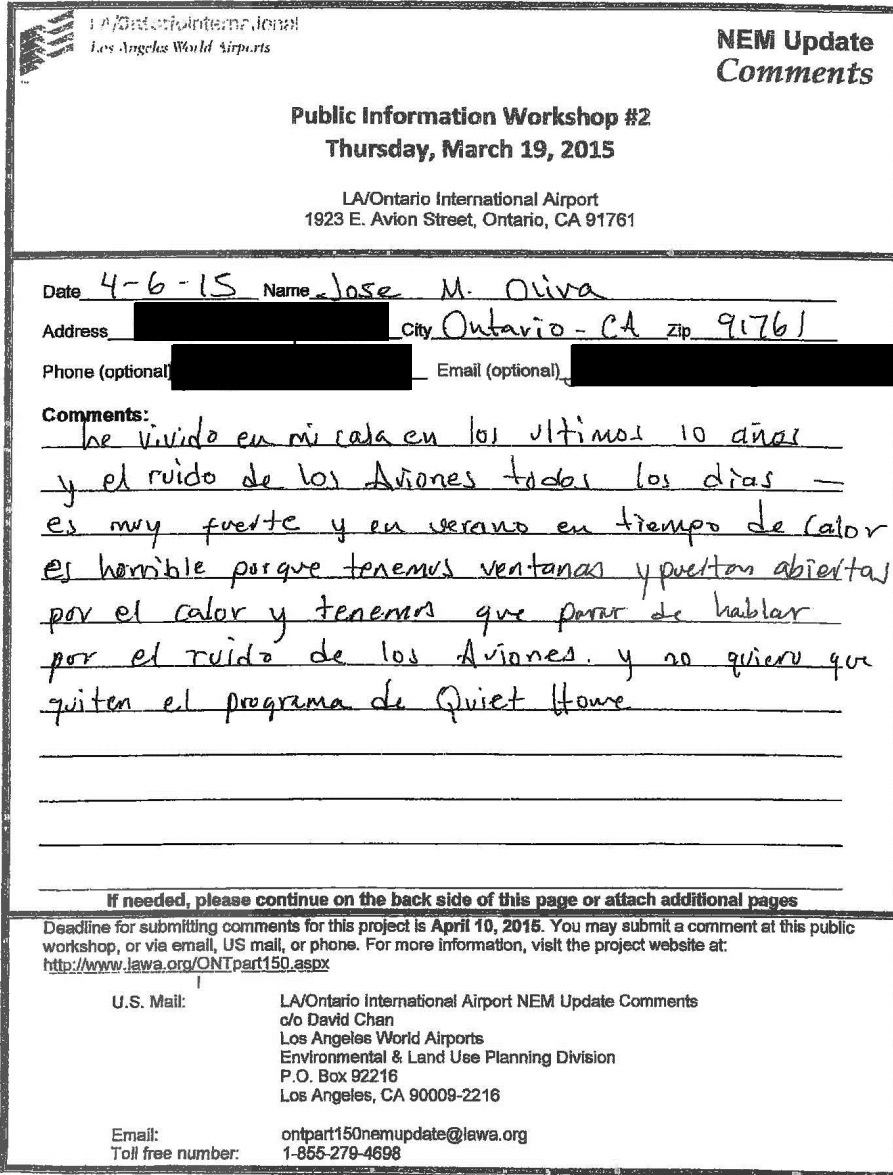 LA/Ontario International
Los Angeles World Airports
NEM Update
Comments
Public Information Workshop #2
Thursday, March 19, 2015
LA/Ontario International Airport
1923 E. Avion Street, Ontario, CA 91761
Date 4-6-15 Name Jose M. Oliva
Address City Ontario - CA Zip 91761
Phone (optional) Email (optional)
Comments:
he vivido en mi casa en los ultimos 10 años
y el ruido de los Aviones todos los dias —
es muy fuerte y en verano en tiempo de Calor
es horrible porque tenemos ventanas y puertas abiertas
por el calor y tenemos que parar de hablar
por el ruido de los Aviones. y no quiero que
quiten el programa de Quiet Home
If needed, please continue on the back side of this page or attach additional pages
Deadline for submitting comments for this project is April 10, 2015. You may submit a comment at this public
workshop, or via email, US mail, or phone. For more information, visit the project website at:
http://www.lawa.org/ONTpart150.aspx
U.S. Mail: LA/Ontario International Airport NEM Update Comments
c/o David Chan
Los Angeles World Airports
Environmental & Land Use Planning Division
P.O. Box 92216
Los Angeles, CA 90009-2216
Email: ontpart150nemupdate@lawa.org
Toll free number: 1-855-279-4698